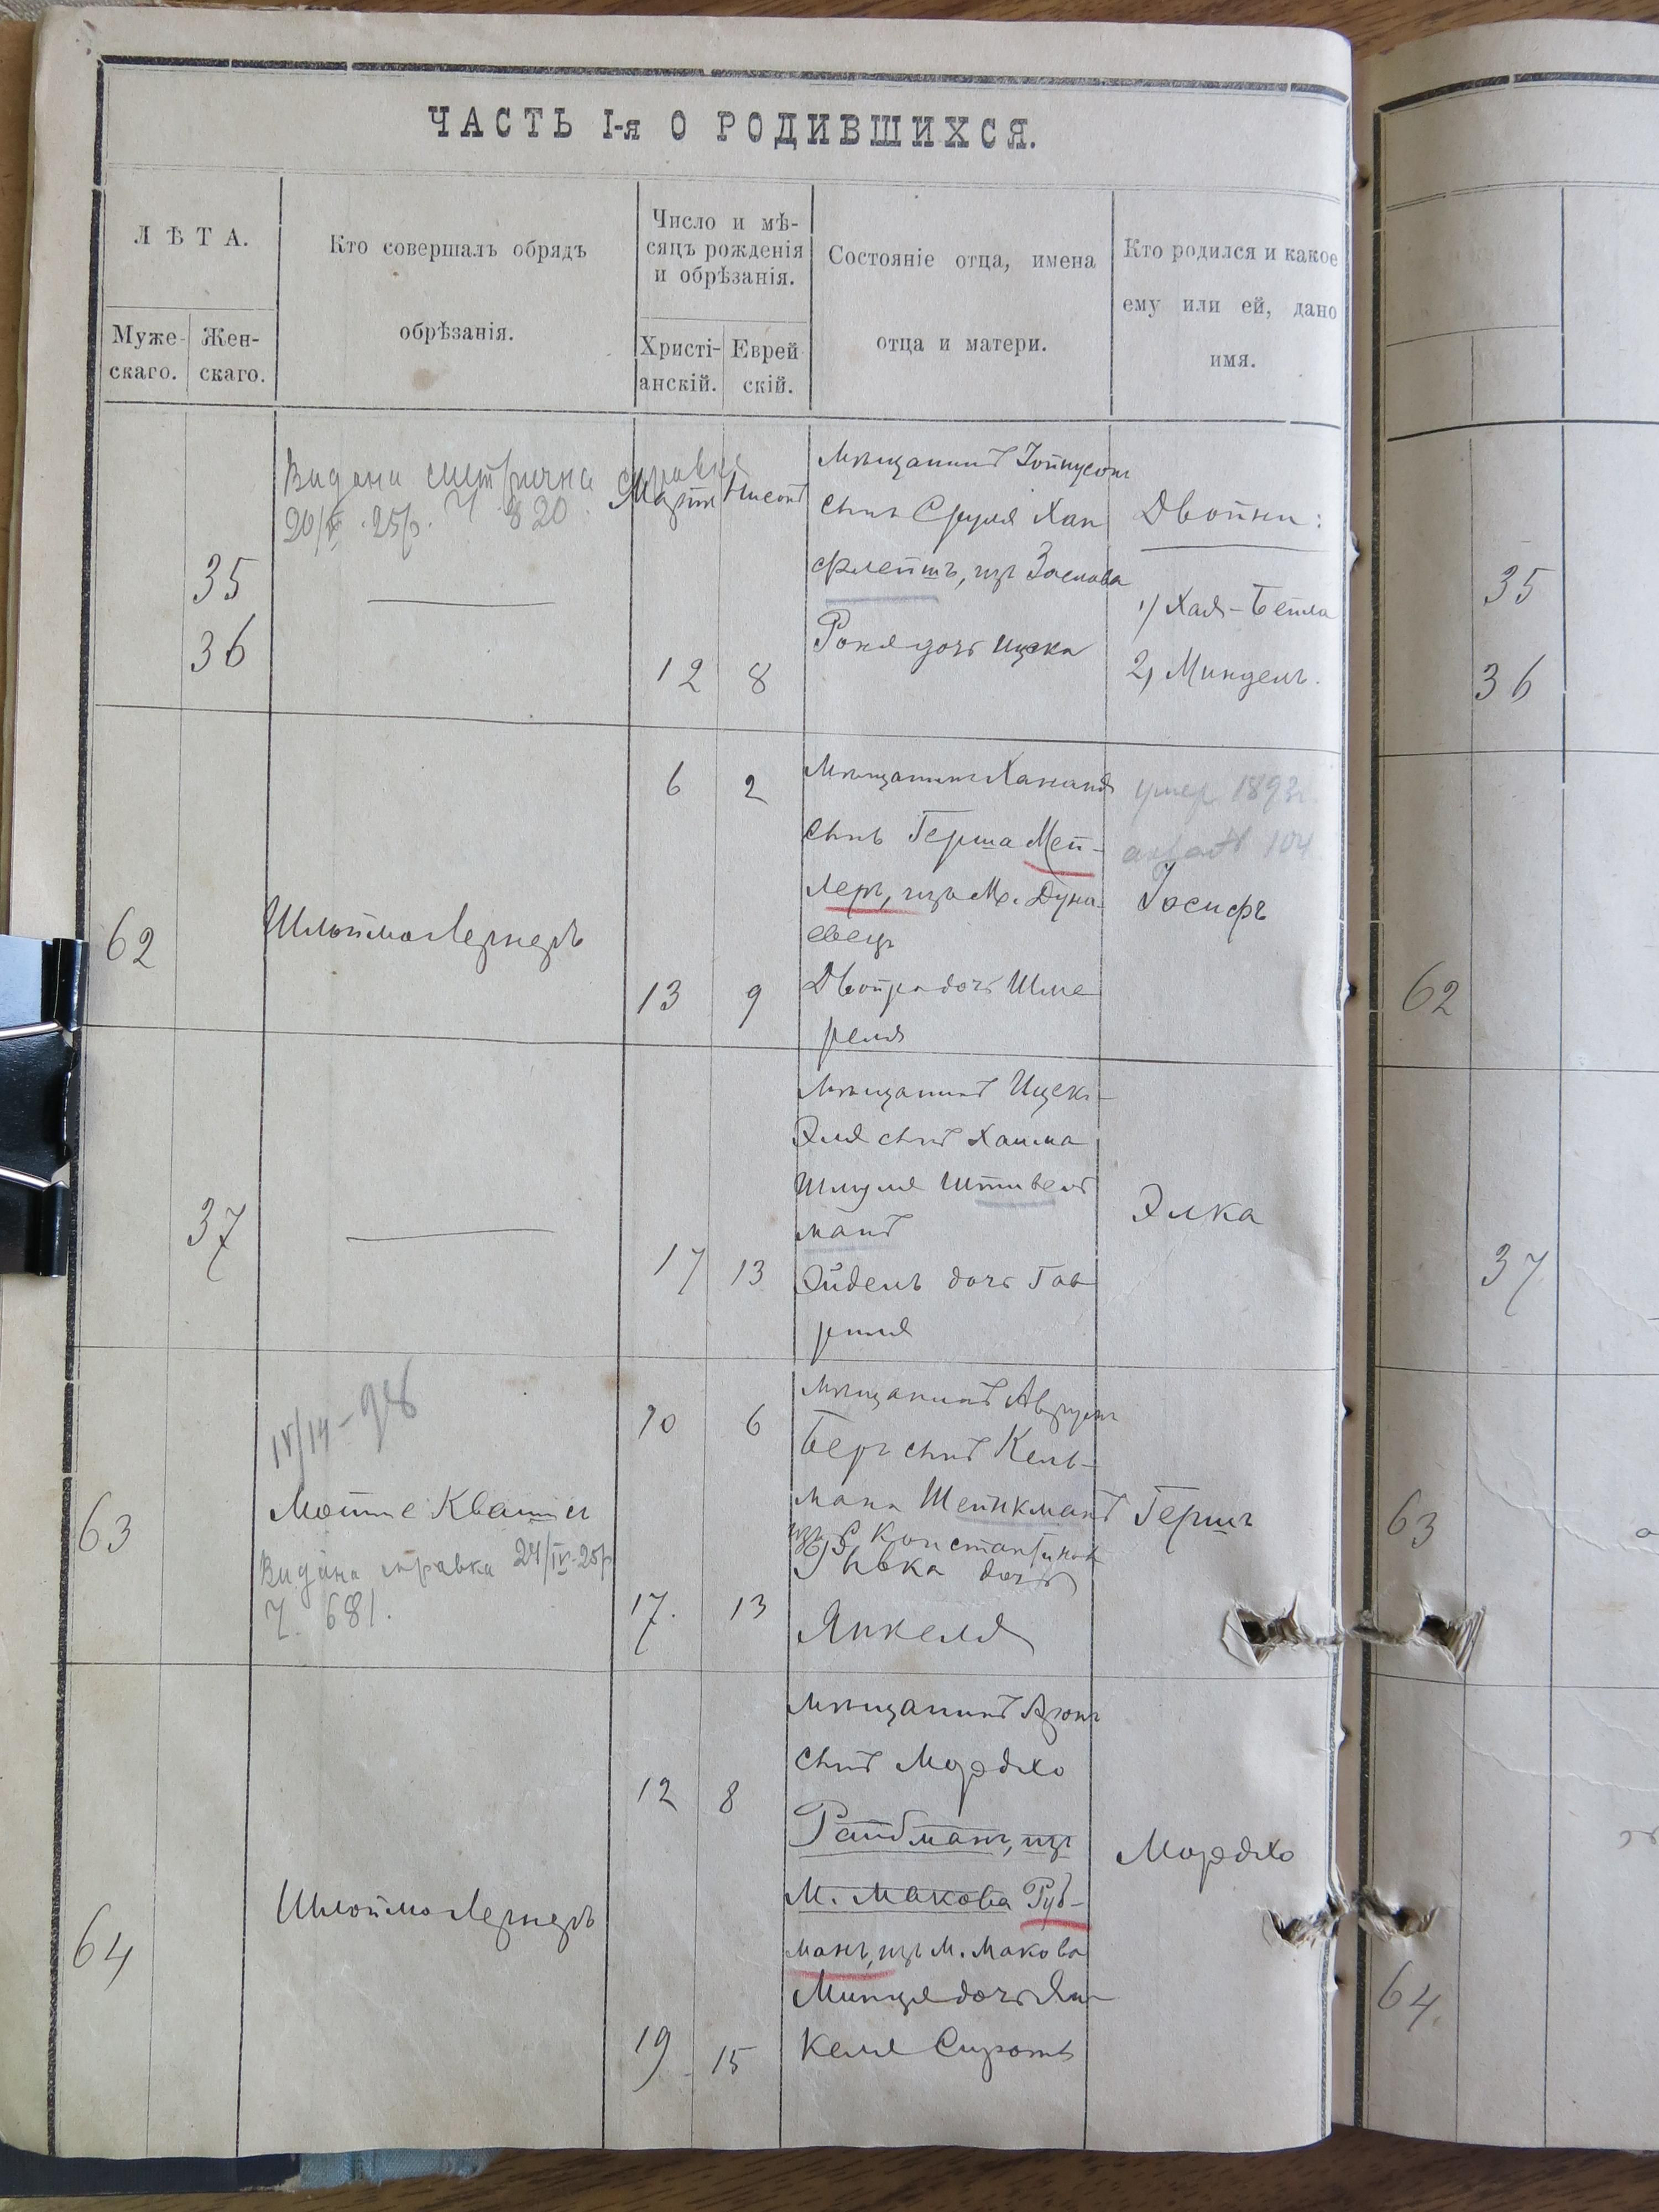 ЧАСТЬ I-я О РОДИВШИХСЯ.
ЛѢТА.
Муже-
скаго.
Жен-
скаго.
Кто совершалъ обрядъ
обрѣзанія.
Число и мѣ-
сяцъ рожденія
и обрѣзанія.
Христі-
анскій.
Еврей
скій.
Состояніе отца, имена
отца и матери.
Кто родился и какое
ему или ей, дано
имя.
35
36
Видана метрична справка
20/ .25р. Ч 820
Мартъ
Нисонъ
12
8
Мѣщанинъ
сынъ Сруля Хан
флейшъ, изъ Заслава
Рохля дочь Ицека
Двойни:
1) Хая-Бейла
2) Миндель.
62
Шлойма Лернеръ
6
2
13
9
Мѣщанинъ Хананя
сынъ Герша Мей-
леръ, изъ М. Дуна-
евецъ
Двойра дочь Шме
реля
умер 1893г
104
Іосифъ
37
17
13
Мѣщанинъ Ицекъ-
Эля сынъ Хаима
Шмуля Штивель
манъ
Эйдель дочь Гав
риля
Элка
63
Мотте Кваша
Видана справка 24/IV-25р
Ч. 681.
10
6
17.
13
Мѣщанинъ Аврумъ
Беръ сынъ Кель-
мана Шейнкманъ
изъ С. Константинов
Ривка дочь
Янкеля
Гершъ
64
Шлойма Лернеръ
12
8
19
15
Мѣщанинъ Аронъ
сынъ Мордхо
Райбманъ, изъ
М. Макова Руб-
манъ, изъ М. Макова
Минця дочь Ян-
келя Сиротъ
Мордхо
35
36
62
37
63
64